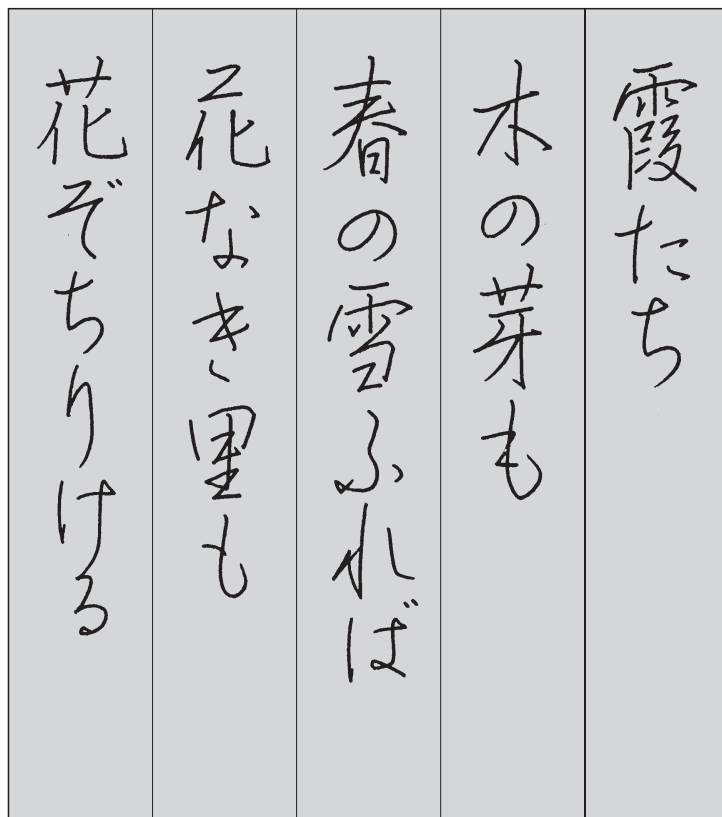 霞たち
木の芽も
春の雪ふれば
花なき里も
花ぞちりける